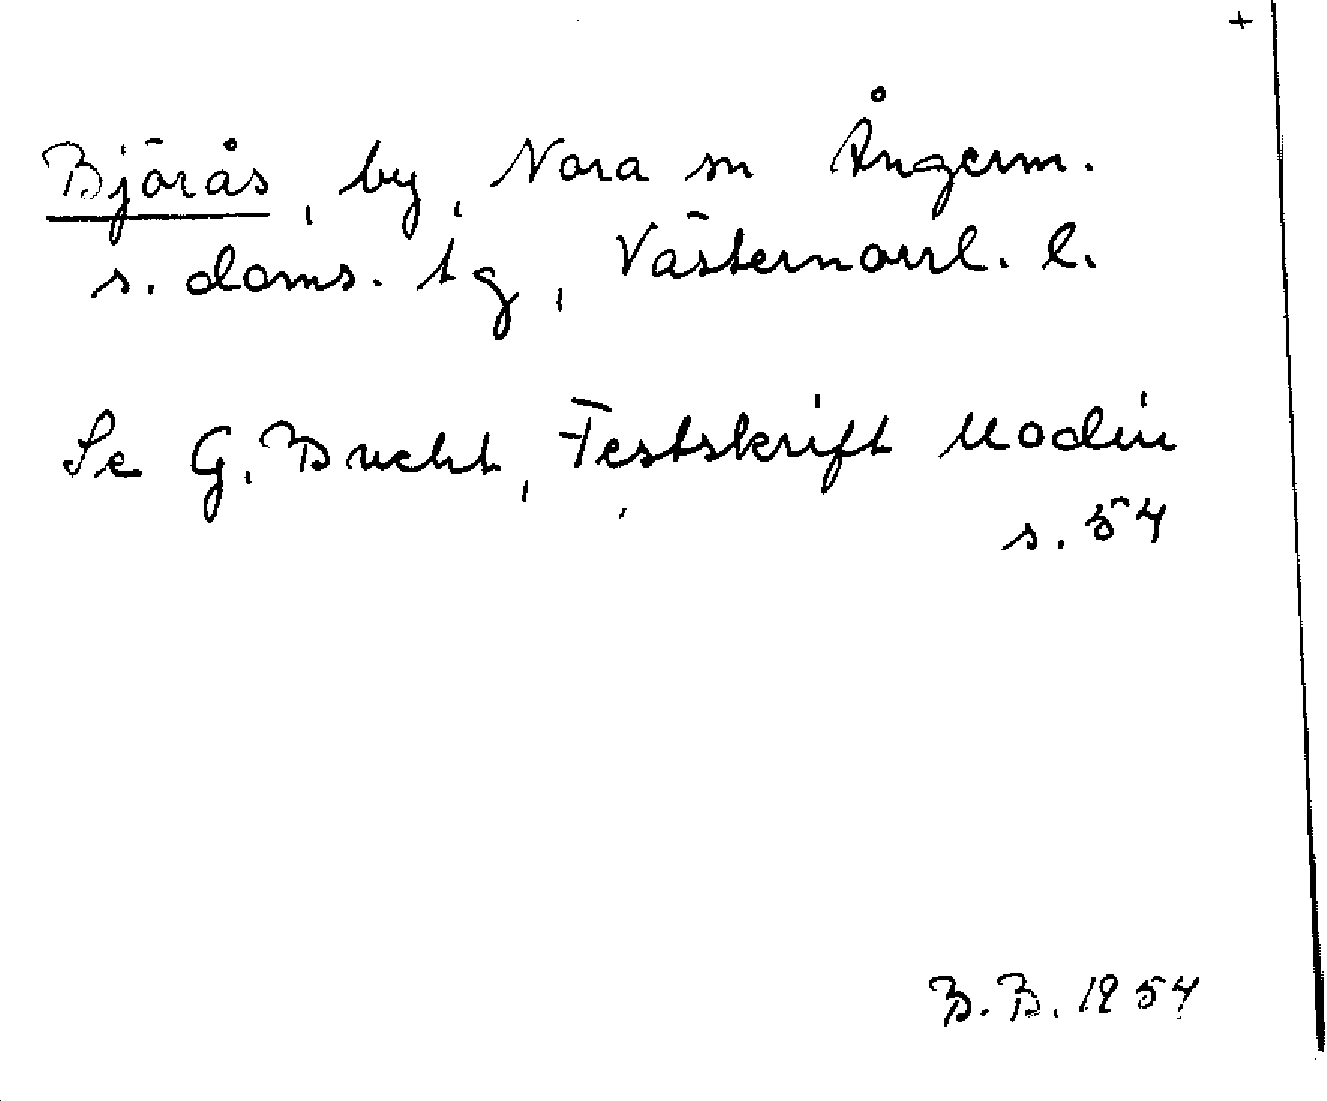 +
Björås, by, Nora sn Ångerm.
s. doms. tg, Västernorrl. l.
Se G. Bucht, Festskrift Modin
s. 54
B.B. 1954